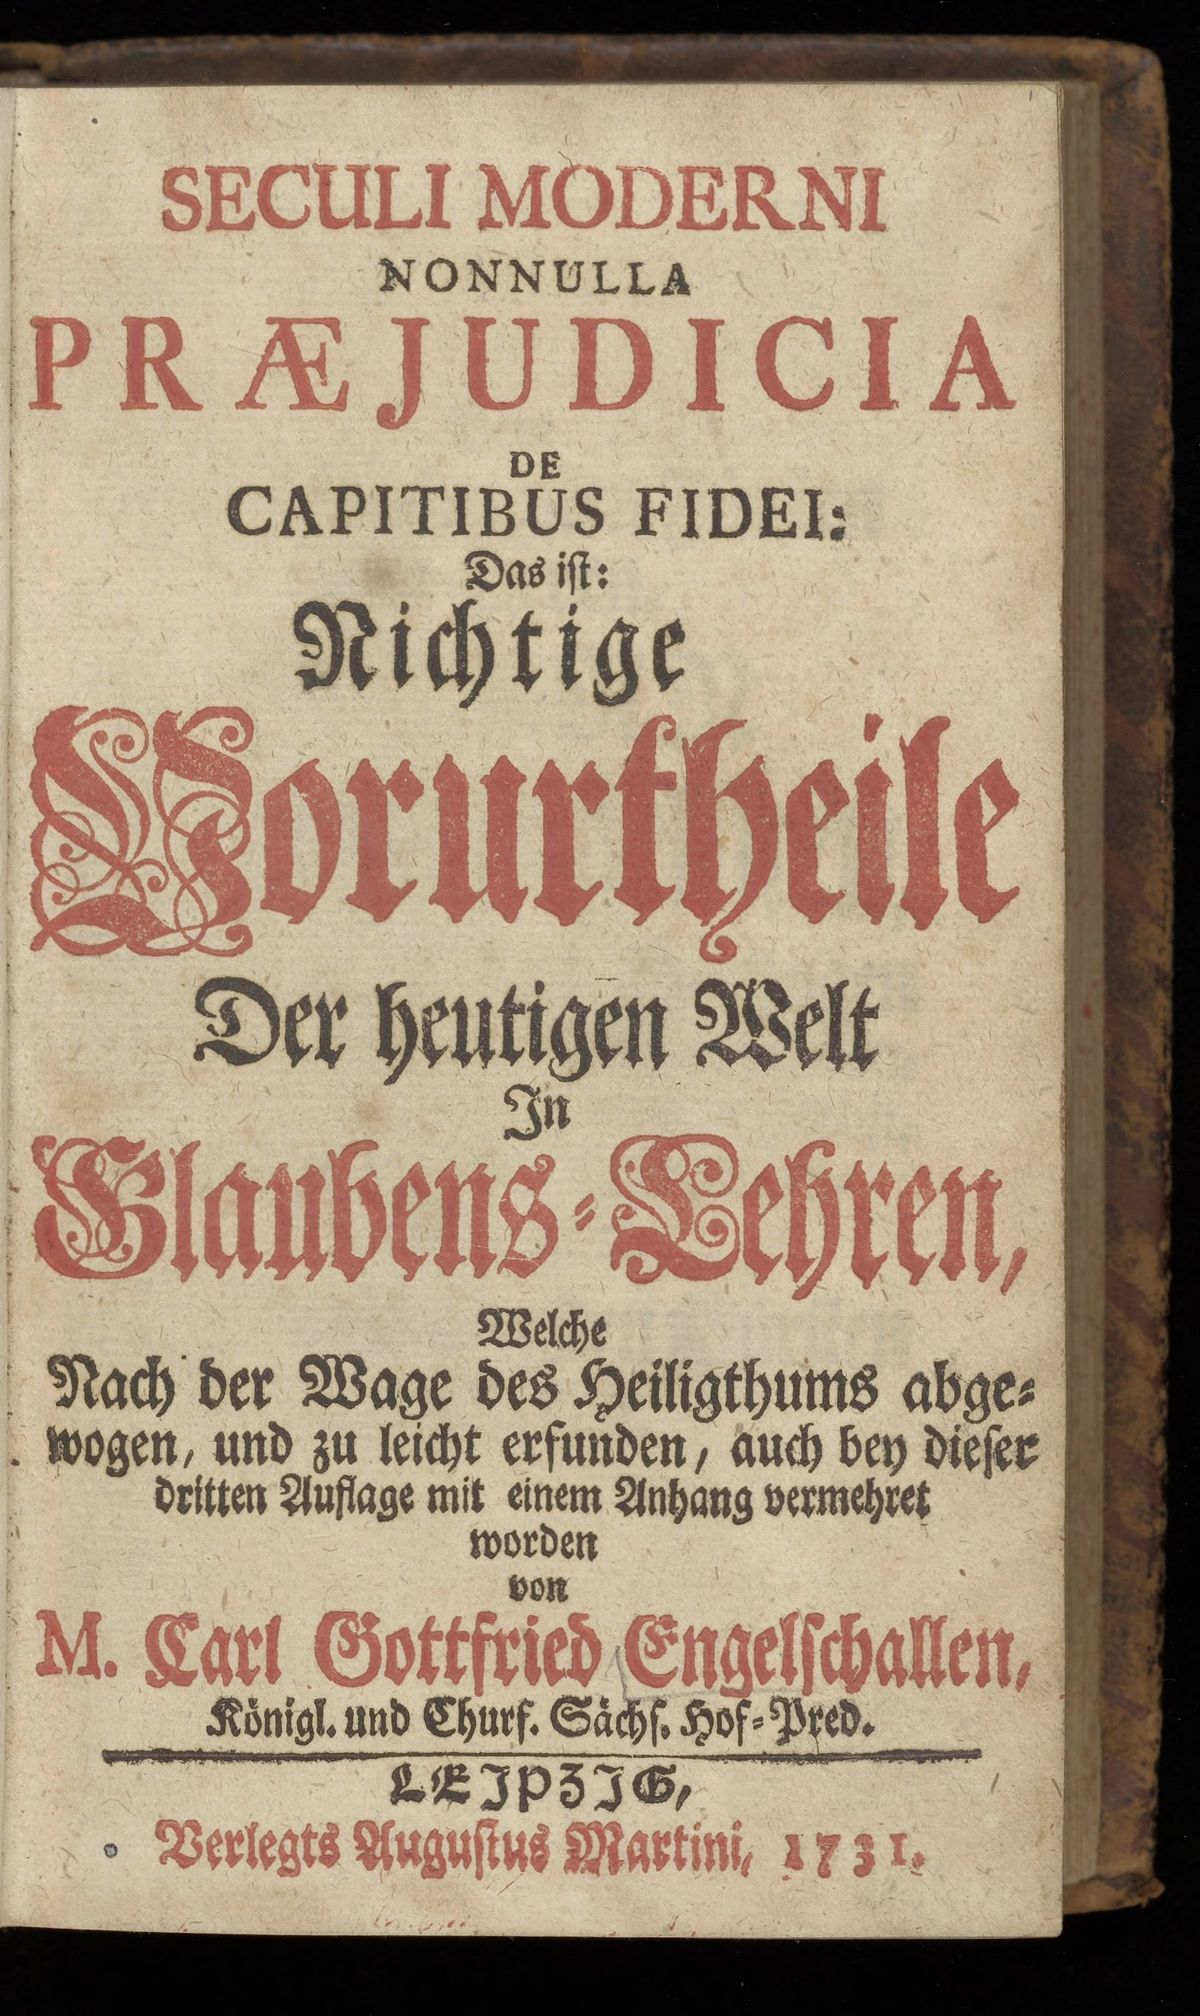 SECULI MODERNI
NONNULLA
PRÆJUDICIA
DE
CAPITIBUS FIDEI:
Das iſt:
Nichtige
Vorurtheile
Der heutigen Welt
In
Glaubens-Lehren,
Welche
Nach der Wage des Heiligthums abge-
wogen, und zu leicht erfunden, auch bey dieſer
dritten Auflage mit einem Anhang vermehret
worden
von
M. Carl Gottfried Engelſchallen,
Königl. und Churf. Sächſ. Hof-Pred.
LEIPZIG,
Verlegts Auguſtus Martini, 1731.